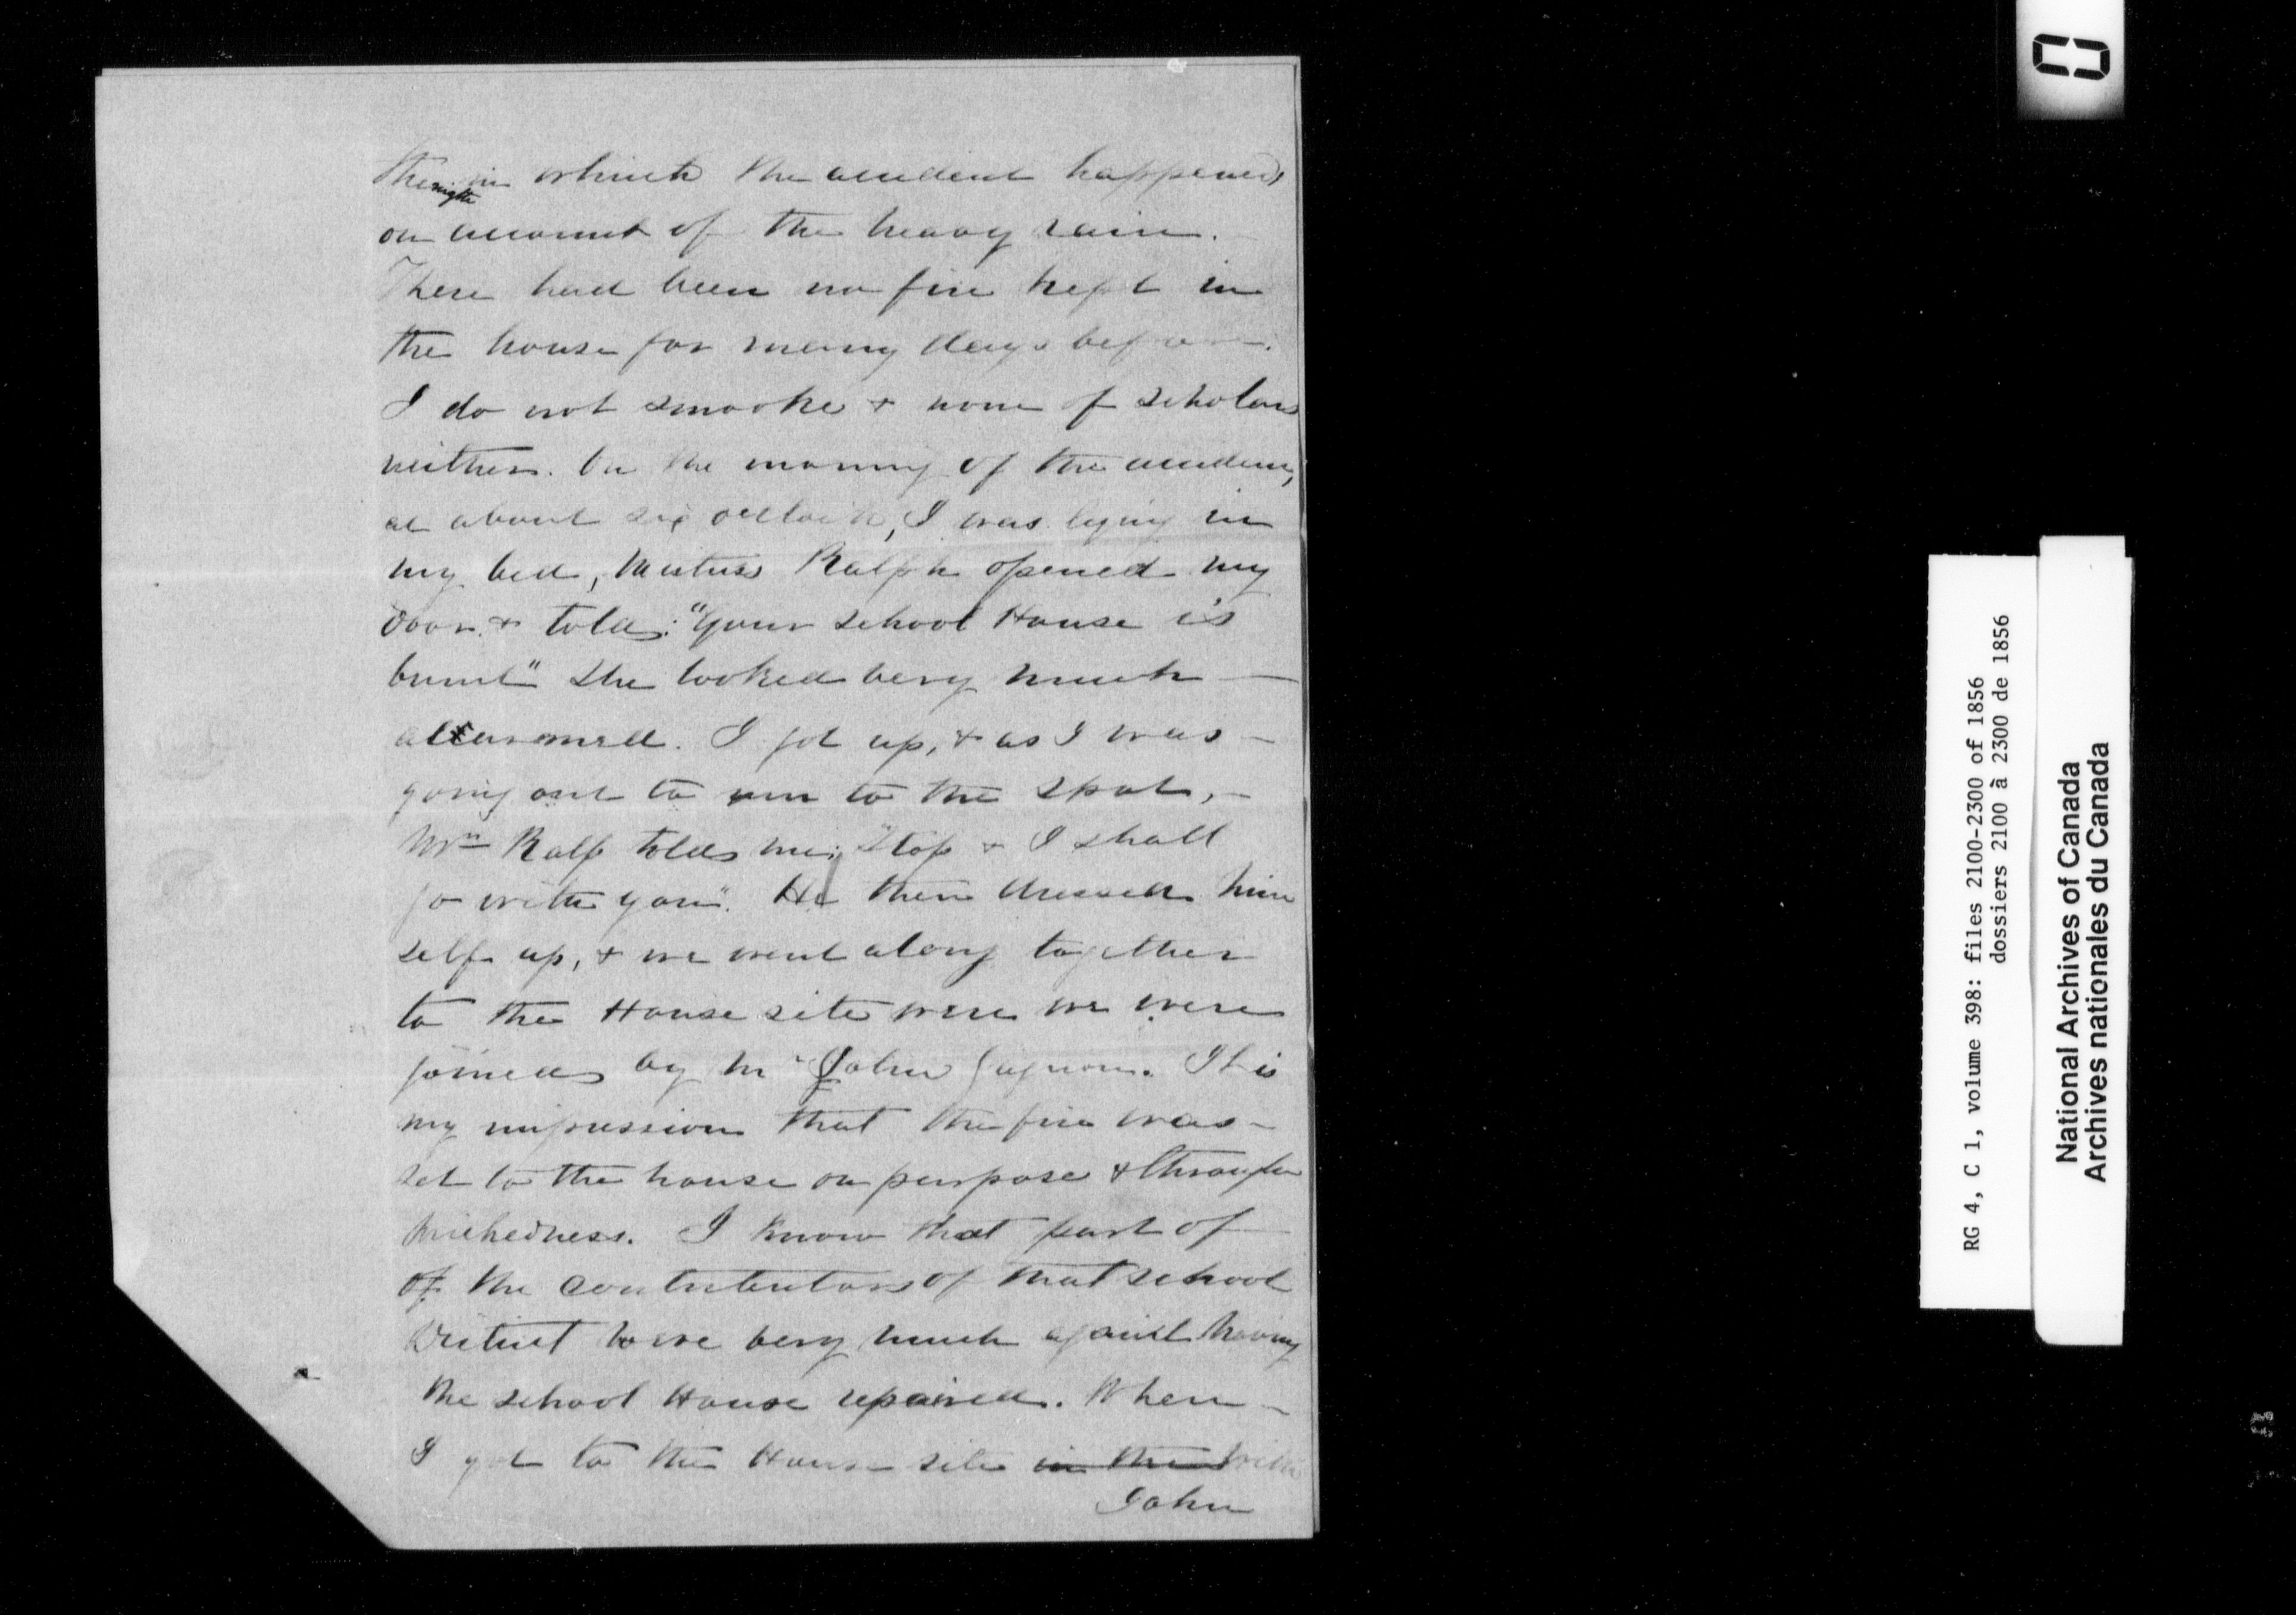 the night in which the accident happened
on account of the heavy rain.
There had been no fire kept in
the house for many days before.
I do not smooke & none of scholars
neither. On the morning of the accident,
at about six oclock, I was lying in
my bed, Mistress Ralph opened my
door & told: "Your school House is
burnt" She looked very much
alarmed. I got up, & as I was
going out to run to the spot,
Mr Ralp told me: "Stop & I shall
go with you". He then dressed him
self up, & we went along together
to the House site were we were
joined by Mr John Gagnon. It is
my impression that the fire was
set to the house on purpose & through
wickedness. I know that part of
of the contributors of that school
District were very much against having
the school House repaired. When
I got to the House site in the with
John
RG 4, C 1, volume 398: files 2100-2300 of 1856
dossiers 2100 à 2300 de 1856
National Archives of Canada
Archives nationales du Canada